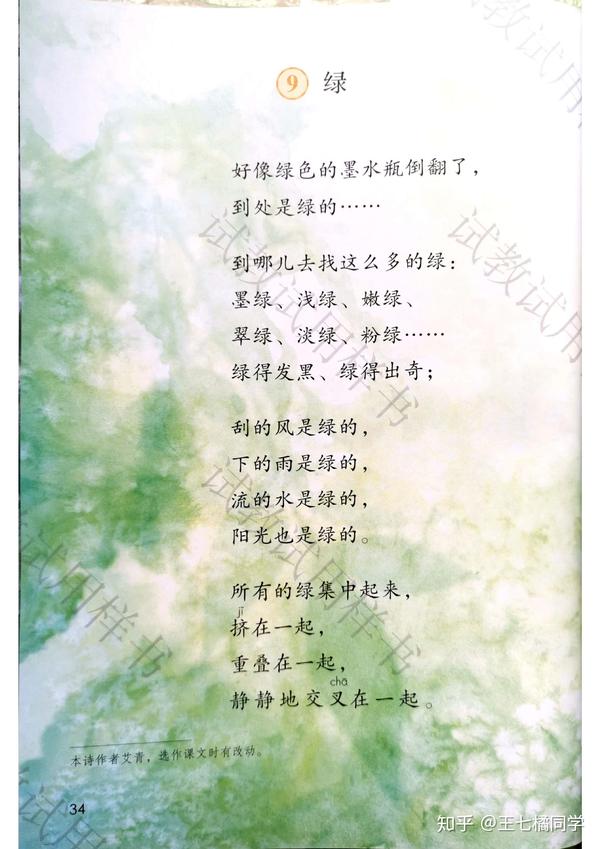 9 绿
好像绿色的墨水瓶倒翻了，
到处是绿的……
到哪儿去找这么多的绿：
墨绿、浅绿、嫩绿、
翠绿、淡绿、粉绿……
绿得发黑、绿得出奇；
刮的风是绿的，
下的雨是绿的，
流的水是绿的，
阳光也是绿的。
所有的绿集中起来，
jǐ
挤在一起，
重叠在一起，
chā
静静地交叉在一起。
本诗作者艾青，选作课文时有改动。
34
试教试用样书
试教试用
试教试用样书
试教试用
试教试用样书
试用样书
试用
知乎 @王七橘同学